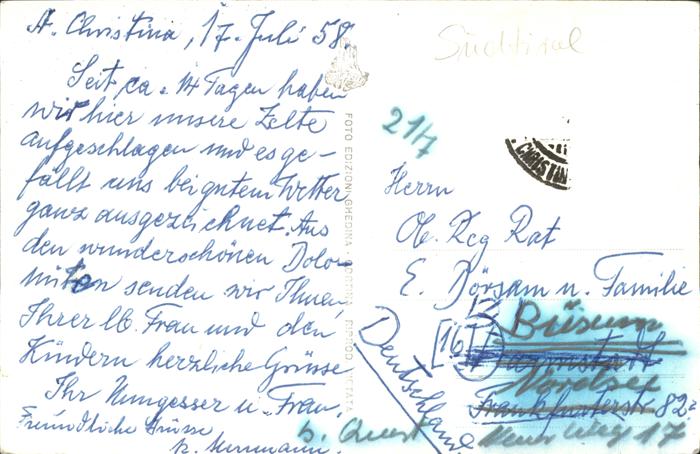 St. Christina, 17. Juli 58.
Seit ca. 14 Tagen haben
wir hier unsere Zelte
aufgeschlagen und es ge-
fällt uns bei gutem Wetter
ganz ausgezeichnet. Aus
den wunderschönen Dolo-
miten senden wir Ihnen,
Ihrer lb. Frau und den
Kindern herzliche Grüsse
Ihr Nungesser u. Frau.
Freundliche Grüsse
Herrmann.
FOTO EDIZIONI GHEDINA
Südtirol
21/7
CHRISTIN
Herrn
Ob. Reg Rat
E. Dörsam u. Familie
Büsum
[16] Darmstadt
Nordsee
Frankfurterstr 82
17
Deutschland
b.